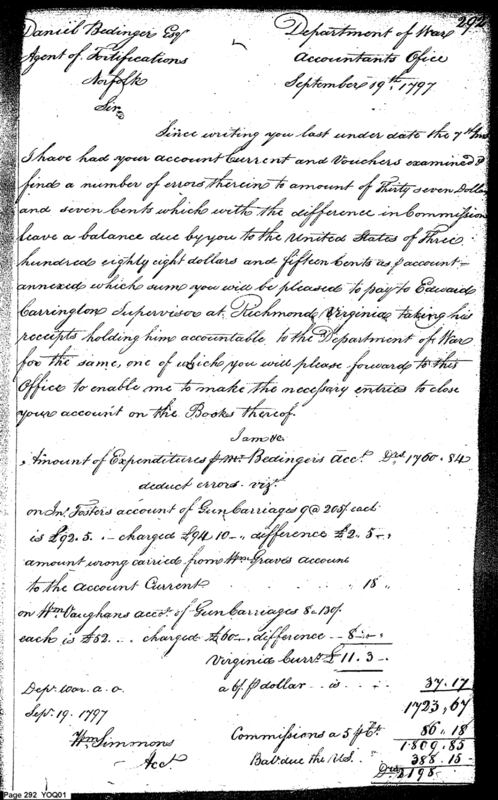 292
Daniel Bedinger Esqr
Agent of Fortifications
Norfolk
Sir,
Department of War
Accountants Office
September 19th. 1797
Since writing you last under date the 7th Inst
I have had your account Current and Vouchers examined &
find a number of errors therein to amount of Thirty seven Dollars
and seven Cents which with the difference in Commission
leave a balance due by you to the United States of Three
hundred eighty eight dollars and fifteen Cents as p account
annexed which sum you will be pleased to pay to Edward
Carrington Supervisor at Richmond Virginia taking his
receipts holding him accountable to the Department of War
for the same, one of which you will please forward to this
Office to enable me to make the necessary entries to close
your account on the Books thereof.
I am &c
Amount of Expenditures p Mr Bedingers Acct. Drs. 1760.84
deduct errors. vizt.
on Jno. Fosters account of Gun Carriages 9 @ 205/ each
is £92.5. .- charged £94 10 -, difference £2.5-,
amount wrong carried from Wm Graves account
to the account Current 18 ,,
on Wm. Vaughans acct. of Gun Carriages 8 a 130/.
each is £52... charged £60-, difference -- 8-,-
Virginia Curry. £11.3-.
a 6/. p dollar .. is 37.17
1723,67
Commissions a 5 p Ct. 86.,18
1.809.85
Bale due the U.S. 388.15-
Drs 2198-
Dep. War. a. o.
Sep. 19. 1797
Wm. Simmons
Acct
Page 292 YOQ01